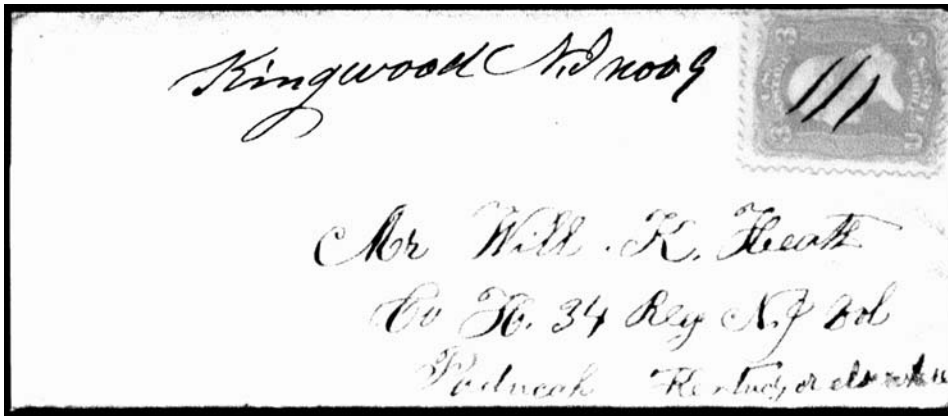 Kingwood N.J Nov 9
3 3
U.S.
Mr Will. K. Heath
Co H. 34 Reg N.J Vol
Paducah Kentucy or elsewhere